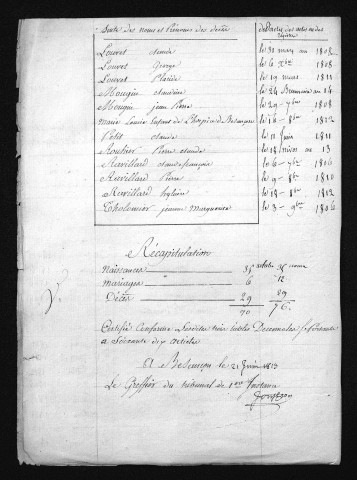 Suite des noms et Prénoms des décédés Dates des actes ou des registres
Louvet Claude le 30 may an 1808
Louvet George le 6 Xbre 1808
Louvet Placide le 19 mars 1811
Mougin le 24 Brumaire an 14
Mougin jean Pierre le 29 7bre 1808
marie Louise Enfant de l'hospice de Besançon le 16 8bre 1812
Petit Claude le 11 juin 1811
Routier Pierre Claude le 18 nivos an 13
Ruvillard Claude françois le 6 7bre 1806
Ruvillard Pierre le 9 8bre 1810
Ruvillard le 18 8bre 1812
Tholomier jeanne Marguerite le 3 9bre 1806
Récapitulation
Naissances 35 articles 35 noms
mariages 6 " 12
Décès 29 29
70 76
Certifié Conforme
a Soixante dix articles
A Besançon le 21 juin 1813
Le Greffier du tribunal de 1ere Instance